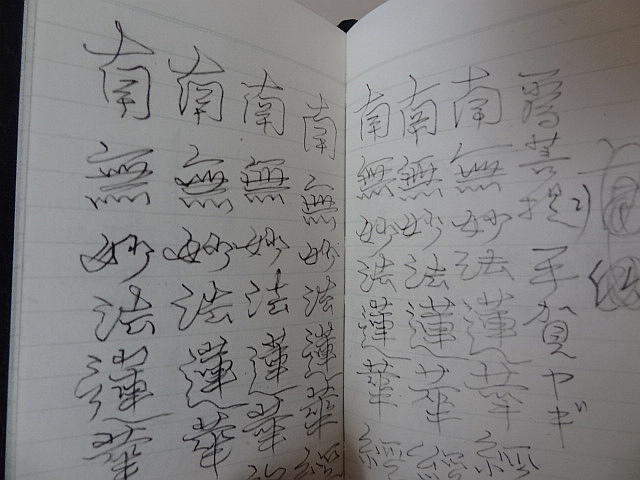 爲菩提 賀ヤギ
南無妙法蓮華經
南無妙法蓮華經
南無妙法蓮華經
南無妙法蓮華經
南無妙法蓮華
南無妙法蓮華
南無妙法蓮華